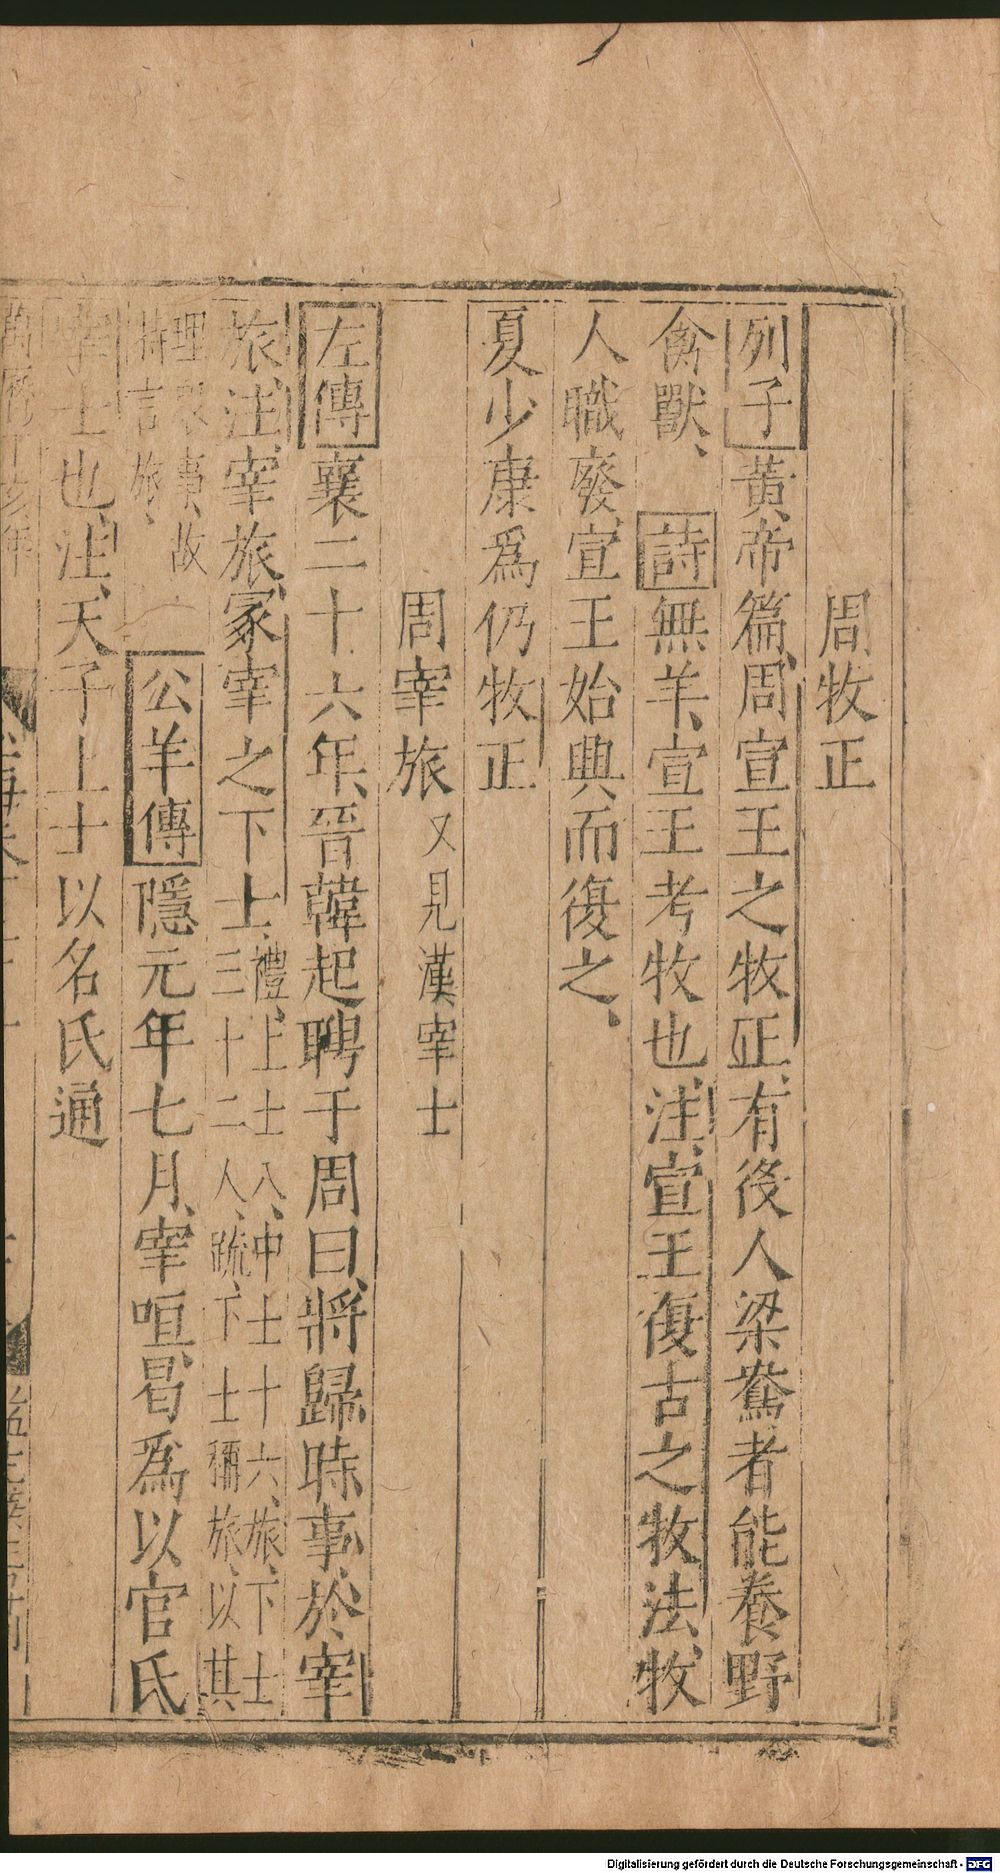 周牧正
列子黃帝篇、周宣王之牧正、有役人梁鴦者能養野
禽獸、 詩無羊、宣王考牧也、注、宣王復古之牧法、牧
人職廢宣王始興而復之、
夏少康爲仍牧正
周宰旅 又見漢宰士
左傳襄二十六年、晉韓起聘于周曰、將歸時事、於宰
旅、注、宰旅、冢宰之下士、禮、上士八、中士十六、旅、下士
三十二人、疏、下士稱旅、以其
理衆事、故
特言旅、
公羊傳隱元年七月、宰咺、曷爲以官氏
宰士也、注、天子上士以名氏通
萬曆 年
Digitalisierung gefördert durch die Deutsche Forschungsgemeinschaft - DFG